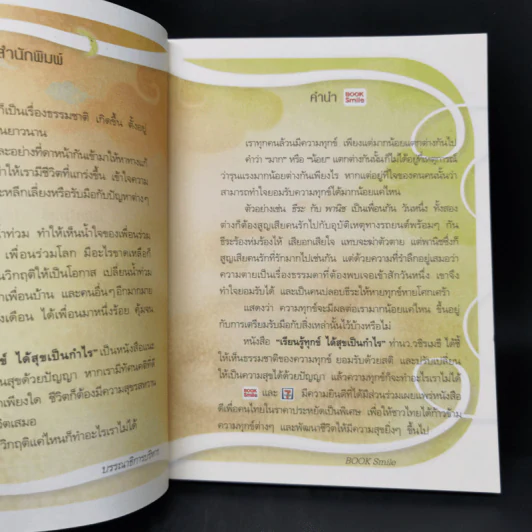 สำนักพิมพ์
ก็เป็นเรื่องธรรมชาติ เกิดขึ้น ตั้งอยู่
นยาวนาน
ละอย่างที่ตาหน้ากันเข้ามาให้หาทางแก้
ทำให้เรามีชีวิตที่แกร่งขึ้น เข้าใจความ
ะหลีกเลี่ยงหรือรับมือกับปัญหาต่างๆ
น้ำท่วม ทำให้เห็นน้ำใจของเพื่อนร่วม
เพื่อนร่วมโลก มีอะไรขาดเหลือก็
นวิกฤติให้เป็นโอกาส เปลี่ยนน้ำท่วม
เพื่อนบ้าน และคนอื่นๆ อีกมากมาย
งเดือน ได้เพื่อนมาหนึ่งร้อย คุ้มจน
ข์ ได้สุขเป็นกำไร" เป็นหนังสือแนะ
นสุขด้วยปัญญา หากเรามีทัศนคติที่ดี
เพียงใด ชีวิตก็ต้องมีความสุขสงบ
ร็ดเสมอ
วิกฤติแค่ไหนก็ทำอะไรเราไม่ได้
บรรณาธิการบริหาร
คำนำ BOOK Smile
เราทุกคนล้วนมีความทุกข์ เพียงแต่มากน้อยแตกต่างกันไป
คำว่า "มาก" หรือ "น้อย" แตกต่างกันนั้นก็ไม่ได้อยู่ที่เหตุการณ์
ว่ารุนแรงมากน้อยต่างกันเพียงไร หากแต่อยู่ที่ใจของคนคนนั้นว่า
สามารถทำใจยอมรับความทุกข์ได้มากน้อยแค่ไหน
ตัวอย่างเช่น ธีระ กับ พานิช เป็นเพื่อนกัน วันหนึ่ง ทั้งสอง
ต่างก็ต้องสูญเสียคนรักไปกับอุบัติเหตุทางรถยนต์พร้อมๆ กัน
ธีระร้องห่มร้องไห้ เสียอกเสียใจ แทบจะฆ่าตัวตาย แต่พานิชซึ่งก็
สูญเสียคนรักที่รักมากไปเช่นกัน แต่ด้วยความที่รำลึกอยู่เสมอว่า
ความตายเป็นเรื่องธรรมดาที่ต้องพบเจอเข้าสักวันหนึ่ง เขาจึง
ทำใจยอมรับได้ และเป็นคนปลอบธีระให้หายทุกข์หายโศกเศร้า
แสดงว่า ความทุกข์จะมีผลต่อเรามากน้อยแค่ไหน ขึ้นอยู่
กับการเตรียมรับมือกับสิ่งเหล่านั้นไว้บ้างหรือไม่
หนังสือ "เรียนรู้ทุกข์ ได้สุขเป็นกำไร" ท่านว.วชิรเมธี ได้ชี้
ให้เห็นธรรมชาติของความทุกข์ ยอมรับด้วยสติ และปรับเปลี่ยน
ให้เป็นความสุขได้ด้วยปัญญา แล้วความทุกข์ก็จะทำอะไรเราไม่ได้
BOOK Smile และ 7 มีความยินดีที่ได้มีส่วนร่วมเผยแพร่หนังสือ
ดีเพื่อคนไทยในราคาประหยัดเป็นพิเศษ เพื่อให้ชาวไทยได้ก้าวข้าม
ความทุกข์ต่างๆ และพัฒนาชีวิตให้มีความสุขยิ่งๆ ขึ้นไป
BOOK Smile